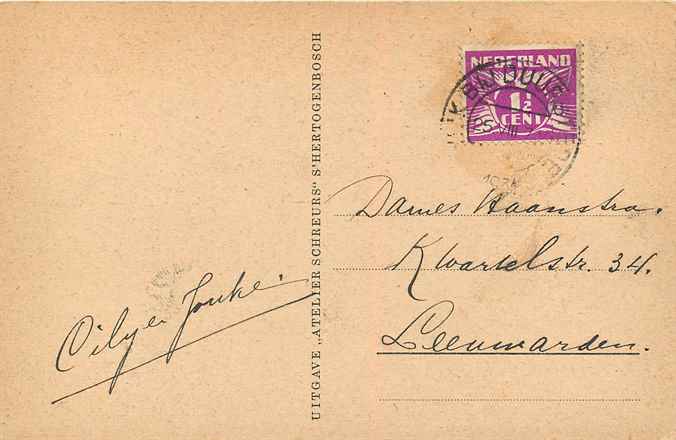 UITGAVE „ATELIER SCHREURS" S'HERTOGENBOSCH
NEDERLAND
1½
CENT
Dames Haanstra.
Kwartelstr. 34.
Leeuwarden.